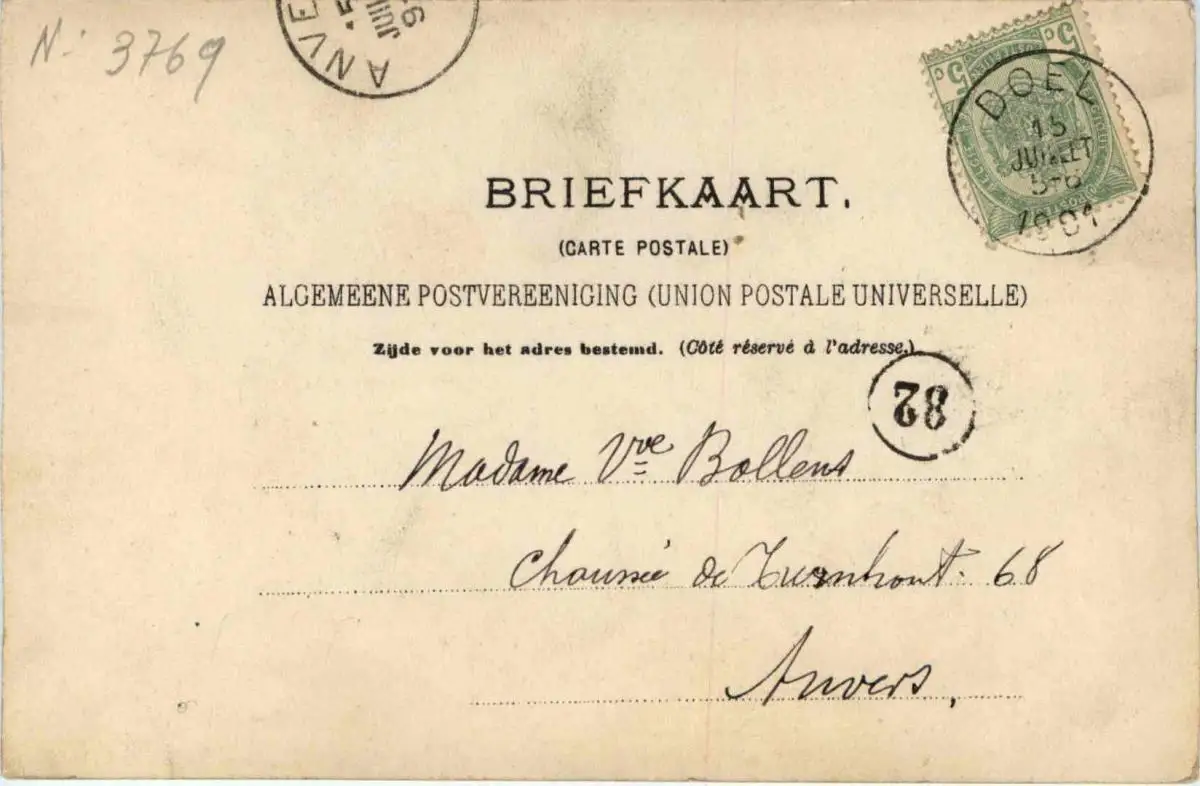 N: 3769
ANVE
15
JUIL
6
5 c 5 c
DOEL
15
JUILLET
5-6
1901
BRIEFKAART.
(CARTE POSTALE)
ALGEMEENE POSTVEREENIGING (UNION POSTALE UNIVERSELLE)
Zijde voor het adres bestemd. (Côté réservé à l'adresse.)
82
Madame Vve Bollens
Chaussée de Turnhout. 68
Anvers,